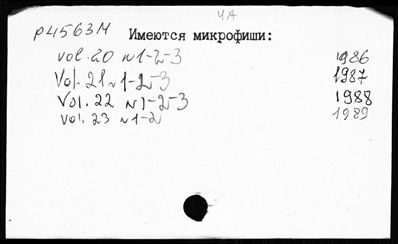 ЧА
р4563М
Имеются микрофиши:
vol. 20 N1-2-3 1986
Vol. 21 N1-2-3 1987
Vol. 22 N1-2-3 1988
vol. 23 N1-2 1989